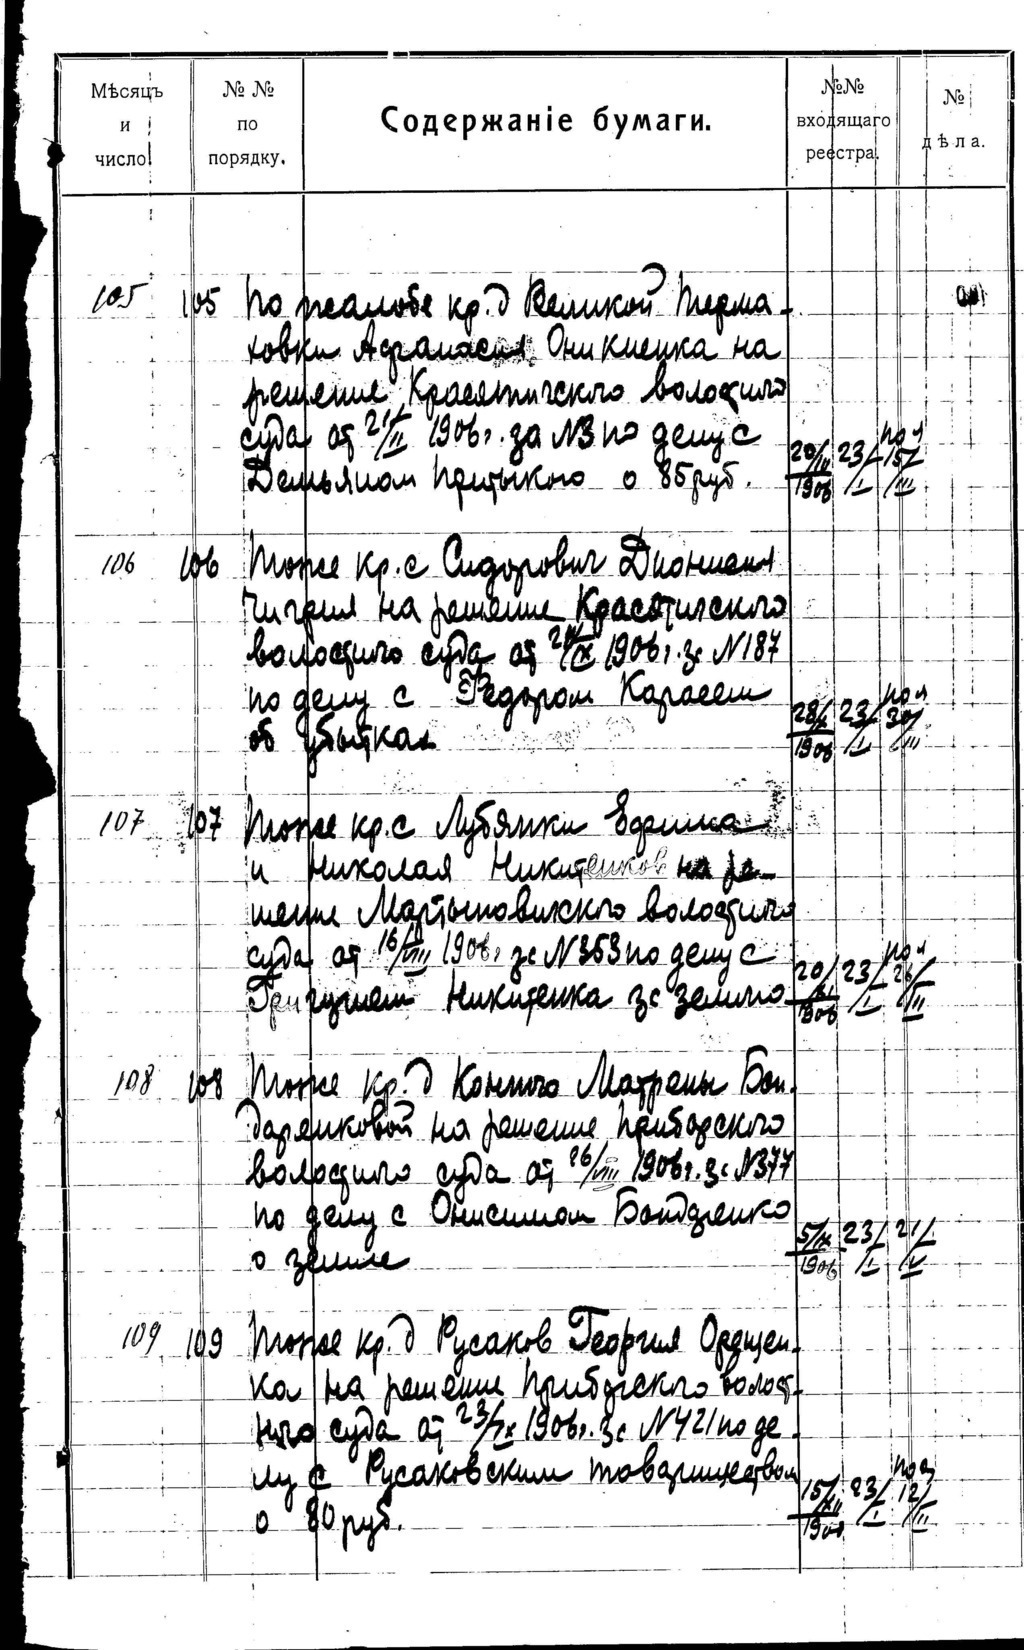 Мѣсяцъ и число.
№ № по порядку.
Содержаніе бумаги.
№№ входящаго реестра.
№ дѣла.
105 105 По жалобе кр. д Великой Терма-
ховки Афанасия Оникиенка на
решение Красятичского волостного
суда от 21/II 1906 г. за №3 по делу с
Демьяном Притыкою о 85 руб.
20/III 1906 23/I пол 15/III
106 106 Тоже кр. с Сидорович Дионисия
Чигрия на решение Красятичского
волостного суда от IX 1906 г. за №187
по делу с Федором Карасем
об убытках
28/X 1906 23/I пол 30/III
107 107 Тоже кр. с Лубянки Ефима
и Николая Никитенков на ре-
шение Мартыновичского волостного
суда от 16/VIII 1906 г. за №353 по делу с
Никитенка за землю
20/XI 1906 23/I пол 26/II
108 108 Тоже кр. д Матрены Бон-
даренковой на решение Приборского
волостного суда от 26/VIII 1906 г. за №377
по делу с Онисимом Бондаренко
о земле
5/IX 1906 23/I 21/V
109 109 Тоже кр. д Русаков Георгия Ордищен-
ка на решение Приборского волост-
ного суда от 23/IX 1906 г. за №421 по де-
лу с Русаковским товариществом
о 80 руб.
15/XII 190 23/I пол 12/II